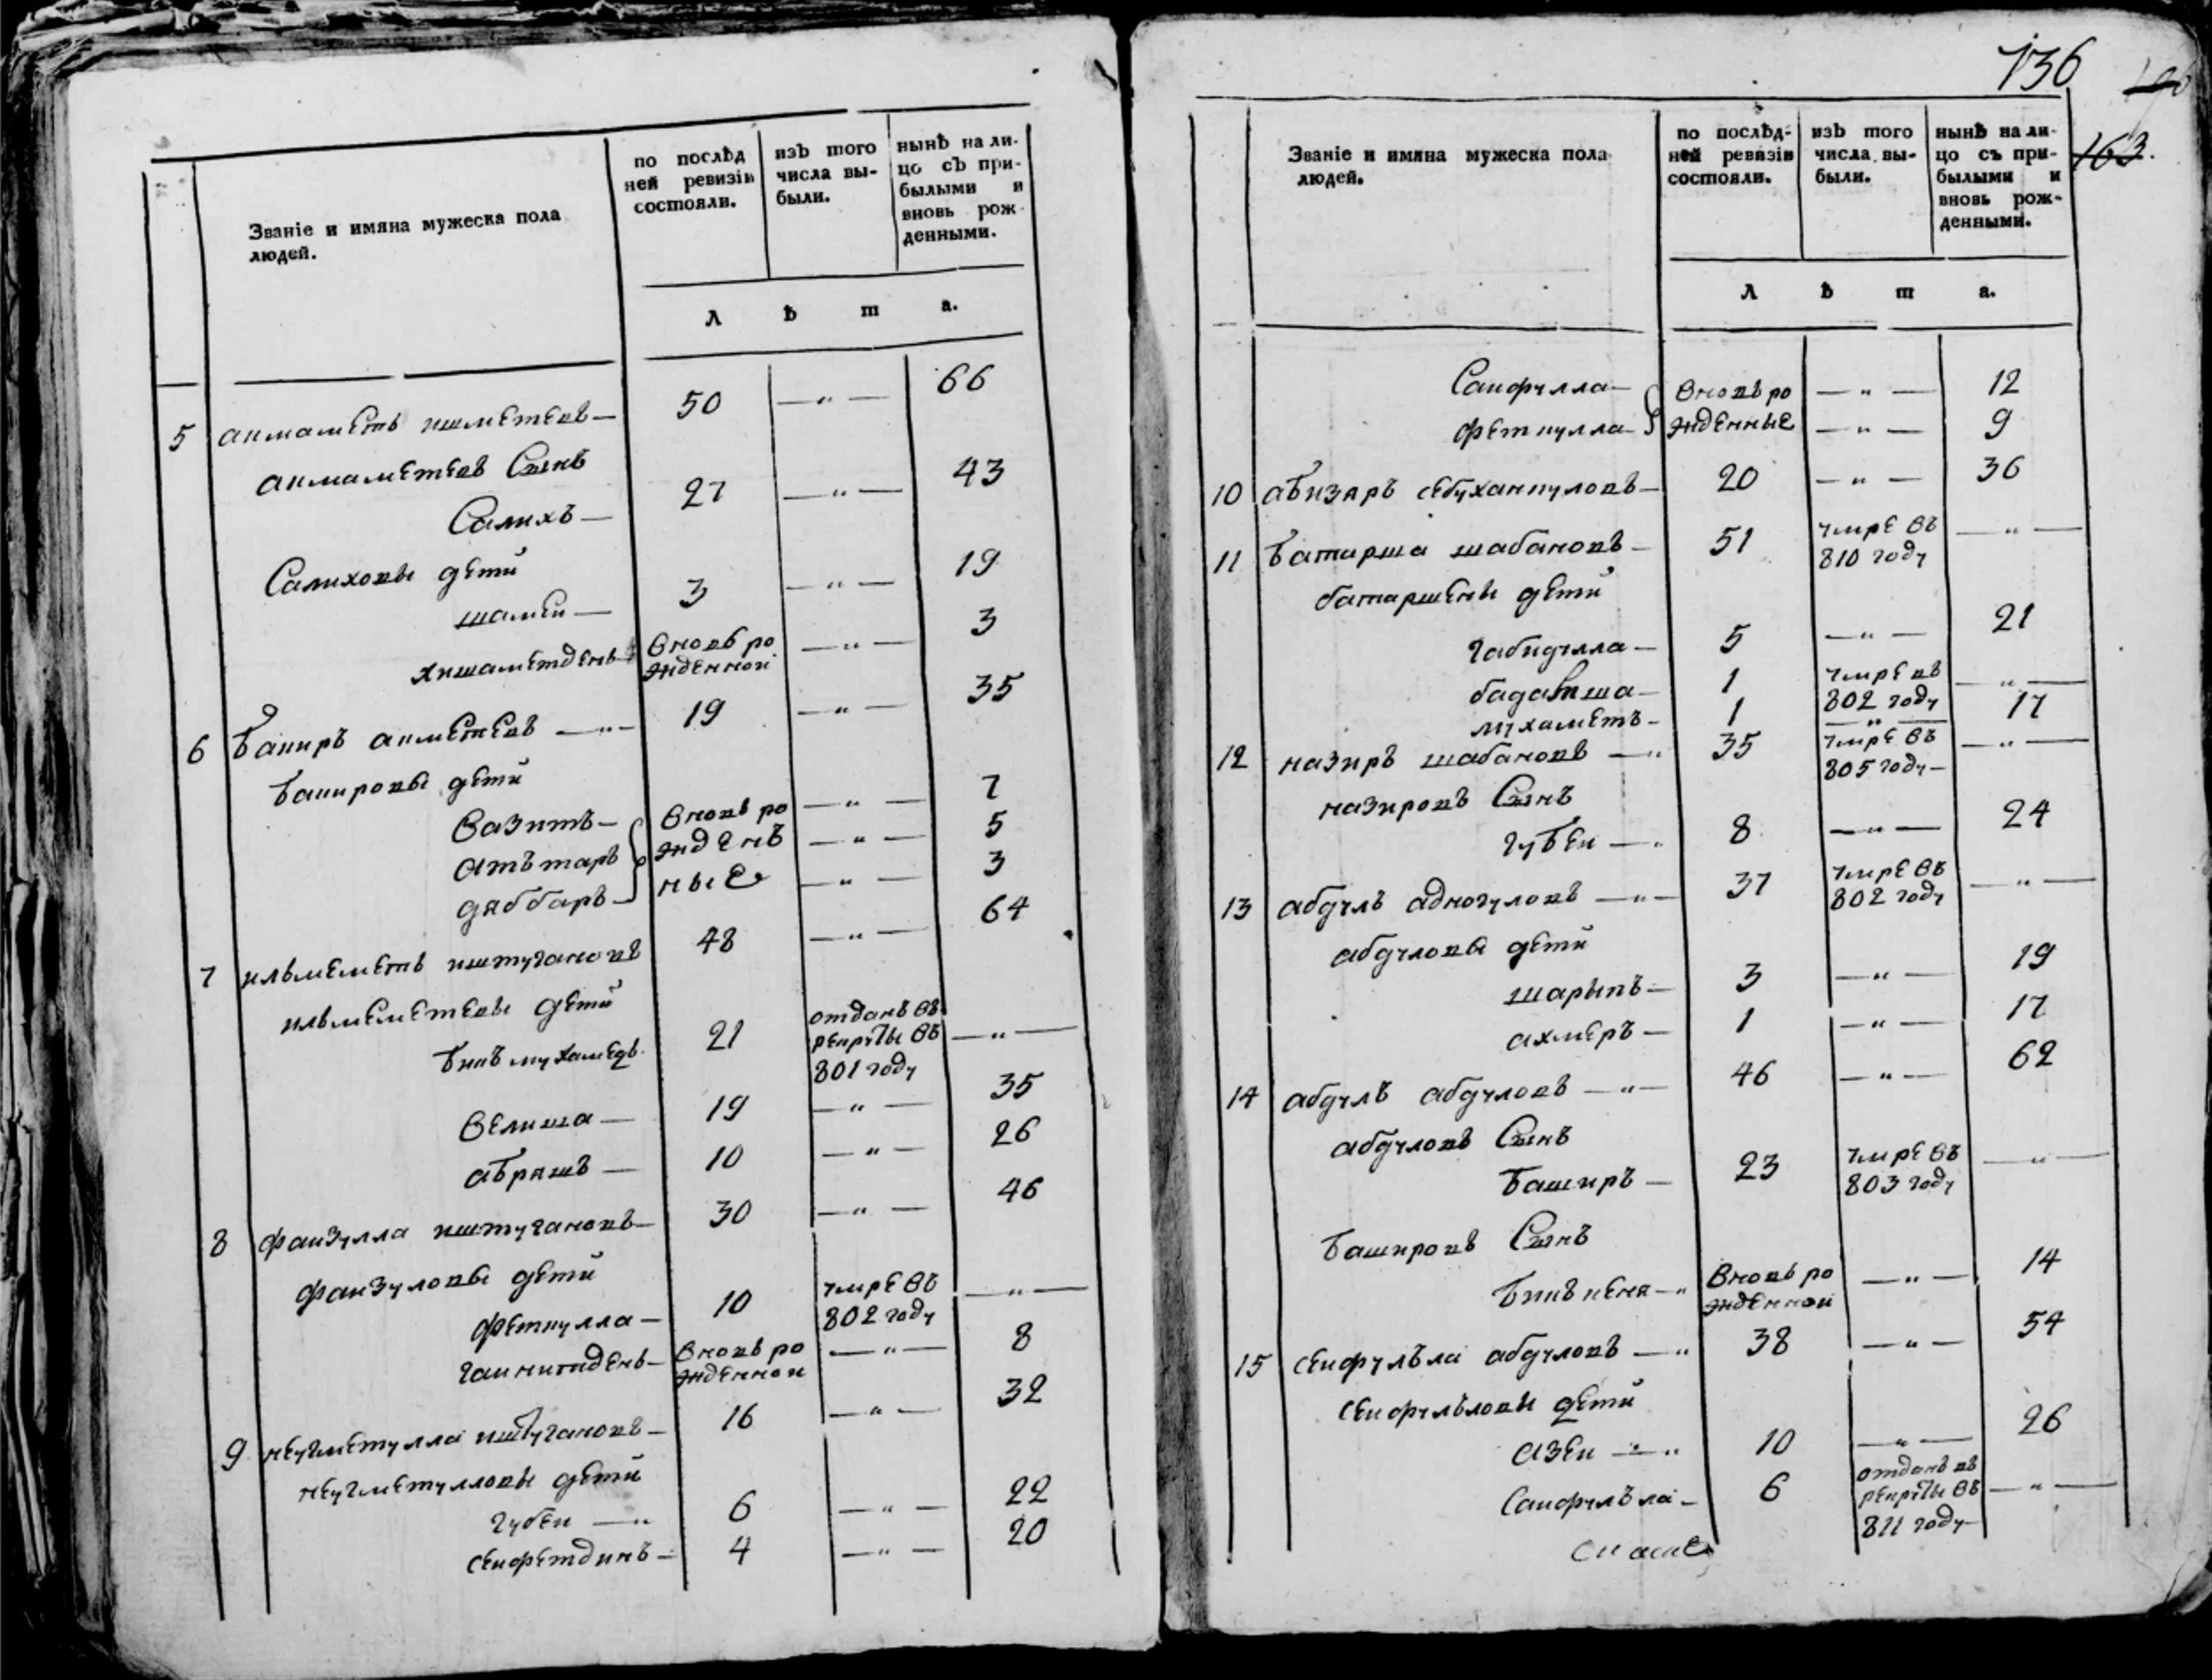 Званіе и имяна мужеска пола
людей.
по послѣд
ней ревизіи
состояли.
изъ того
числа вы-
были.
нынѣ на ли-
цо съ при-
былыми и
вновь рож-
денными.
Л ѣ т а.
5 акмаметь ишметевъ — 50 — „ — 66
акмаметевъ Сынъ
Салихъ — 27 — „ — 43
Салиховы дети
шамеи — 3 — „ — 19
хишаметдень вновь ро — „ — 3
жденной
6 бакиръ акметевъ — „ — 19 — „ — 35
бакировы дети
вазитъ — вновь ро — „ — 7
атътаръ жденъ — „ — 5
дяббаръ — ные — „ — 3
7 ильмеметь иштугановъ 48 — „ — 64
ильмеметевы дети
бикъмухамедь 21 отданъ въ
рекруты въ — „ —
801 году
велиша — 19 — „ — 35
абряшъ — 10 — „ — 26
8 фаизулла иштугановъ — 30 — „ — 46
фаизуловы дети
феткулла — 10 умре въ — „ —
802 году
гаинитдень — вновь ро — „ — 8
жденнои
9 неугметулла иштугановъ — 16 — „ — 32
неугметулловы дети
губеи — „ 6 — „ — 22
сеифетдинъ — 4 — „ — 20
136
163.
Званіе и имяна мужеска пола
людей.
по послѣд-
ней ревизіи
состояли.
изъ того
числа вы-
были.
нынѣ на ли-
цо съ при-
былыми и
вновь рож-
денными.
Л ѣ т а.
Саифулла — вновь ро — „ — 12
феткулла — жденные — „ — 9
10 абизяръ себуханкуловъ — 20 — „ — 36
11 батарша шабановъ — 51 умре въ — „ —
810 году
батаршены дети
габидулла — 5 — „ — 21
бадатша — 1 умре въ — „ —
802 году
мухаметъ — 1 — „ — 17
12 назиръ шабановъ — „ 35 умре въ — „ —
805 году —
назировъ Сынъ
губеи — „ 8 — „ — 24
13 абдулъ адногуловъ — „ — 37 умре въ — „ —
802 году
абдуловы дети
шарыпъ — 3 — „ — 19
ахмеръ — 1 — „ — 17
14 абдулъ абдуловъ — „ — 46 — „ — 62
абдуловъ Сынъ
баширъ — 23 умре въ — „ —
803 году
башировъ Сынъ
бикъкеня — „ вновь ро — „ — 14
жденнои
15 сеифулъла абдуловъ — „ 38 — „ — 54
сеифулъловы дети
азеи — „ 10 — „ — 26
Саифулъла — 6 отданъ въ
рекруты въ — „ —
811 году —